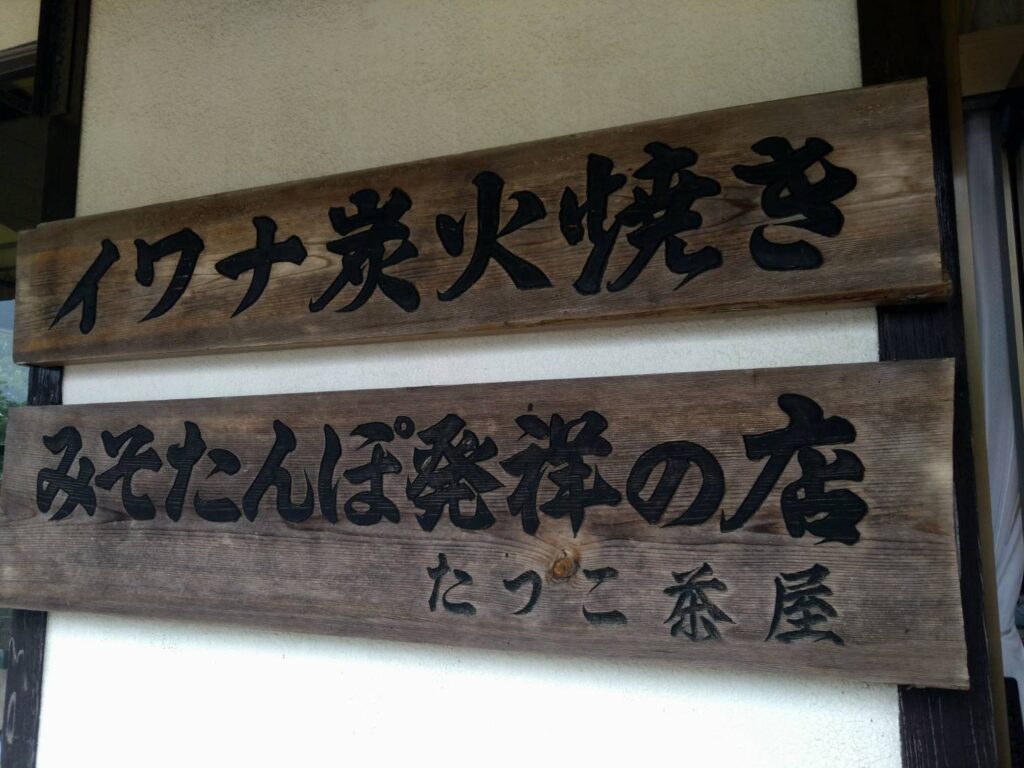 イワナ炭火焼き
みそたんぽ発祥の店
たっこ茶屋